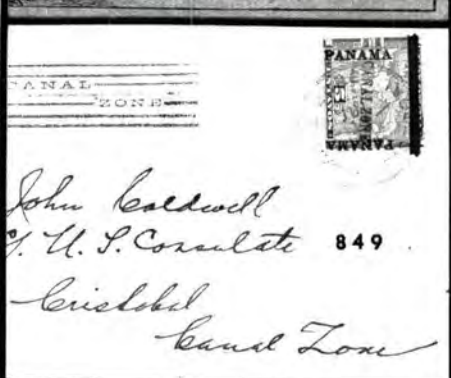 PANAMA
CANAL ZONE
PANAMA
ANAL
ZONE
John Caldwell
U. S. Consulate 849
Cristobal
Canal Zone